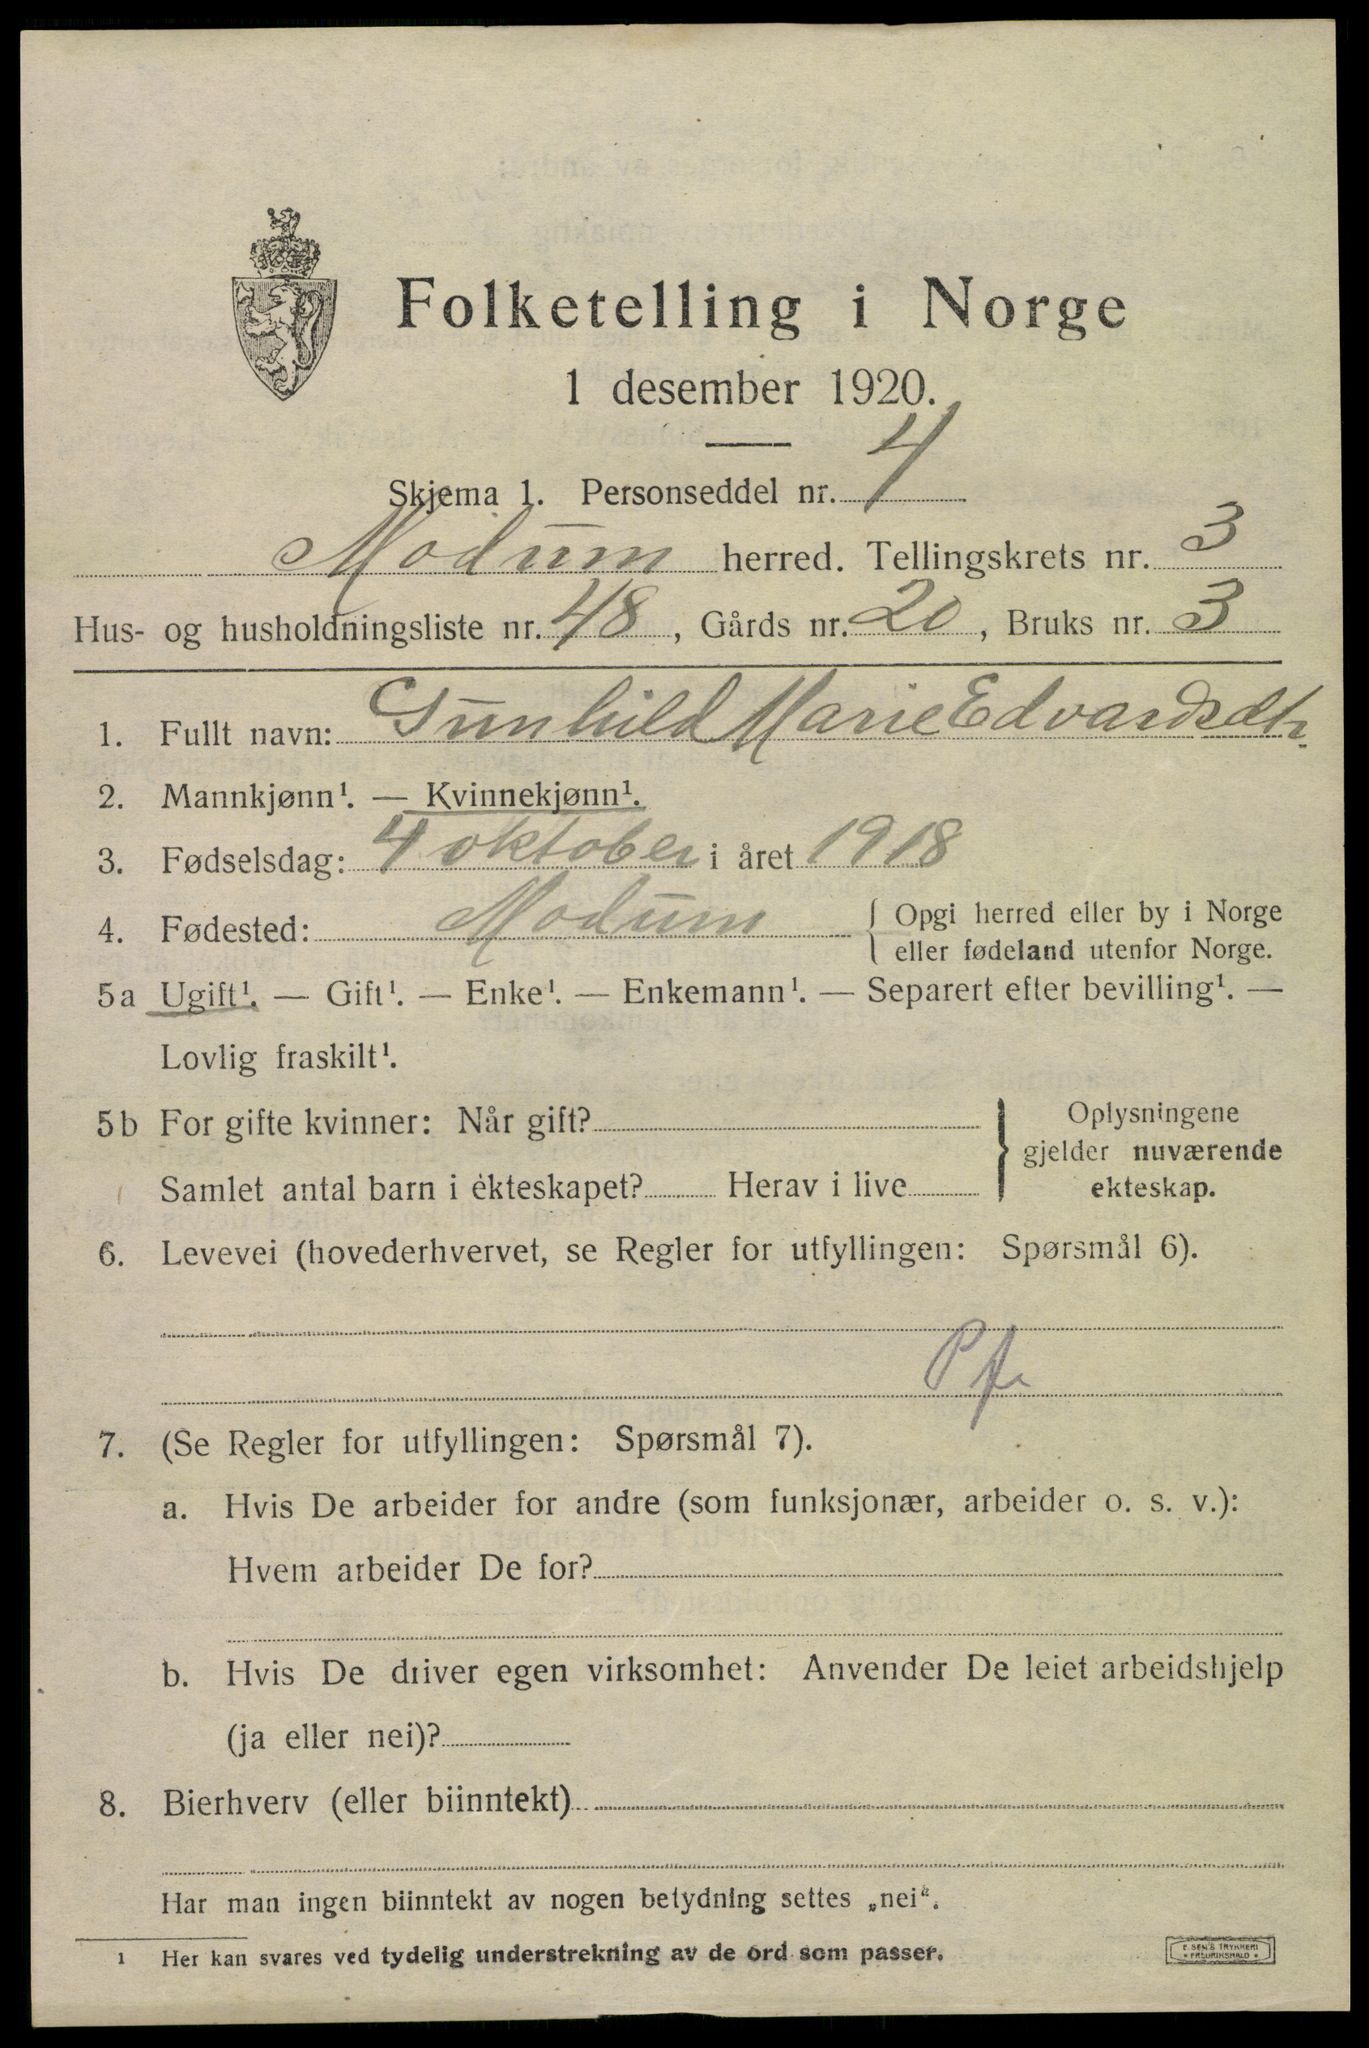 Folketelling i Norge
1 desember 1920.
Skjema 1. Personseddel nr. 4
Modum herred. Tellingskrets nr. 3
Hus- og husholdningsliste nr. 48, Gårds nr. 20, Bruks nr. 3
1. Fullt navn: Gunhild Marie Edvardsdtr.
2. Mannkjønn¹. — Kvinnekjønn¹.
3. Fødselsdag: 4 oktober i året 1918
4. Fødested: Modum { Opgi herred eller by i Norge
eller fødeland utenfor Norge.
5a Ugift¹. — Gift¹. — Enke¹. — Enkemann¹. — Separert efter bevilling¹. —
Lovlig fraskilt¹.
5b For gifte kvinner: Når gift?
Samlet antal barn i ekteskapet? Herav i live
} Oplysningene
gjelder nuværende
ekteskap.
6. Levevei (hovederhvervet, se Regler for utfyllingen: Spørsmål 6).
7. (Se Regler for utfyllingen: Spørsmål 7).
a. Hvis De arbeider for andre (som funksjonær, arbeider o. s. v.):
Hvem arbeider De for?
b. Hvis De driver egen virksomhet: Anvender De leiet arbeidshjelp
(ja eller nei)?
8. Bierhverv (eller biinntekt)
Har man ingen biinntekt av nogen betydning settes „nei“.
1 Her kan svares ved tydelig understrekning av de ord som passer.